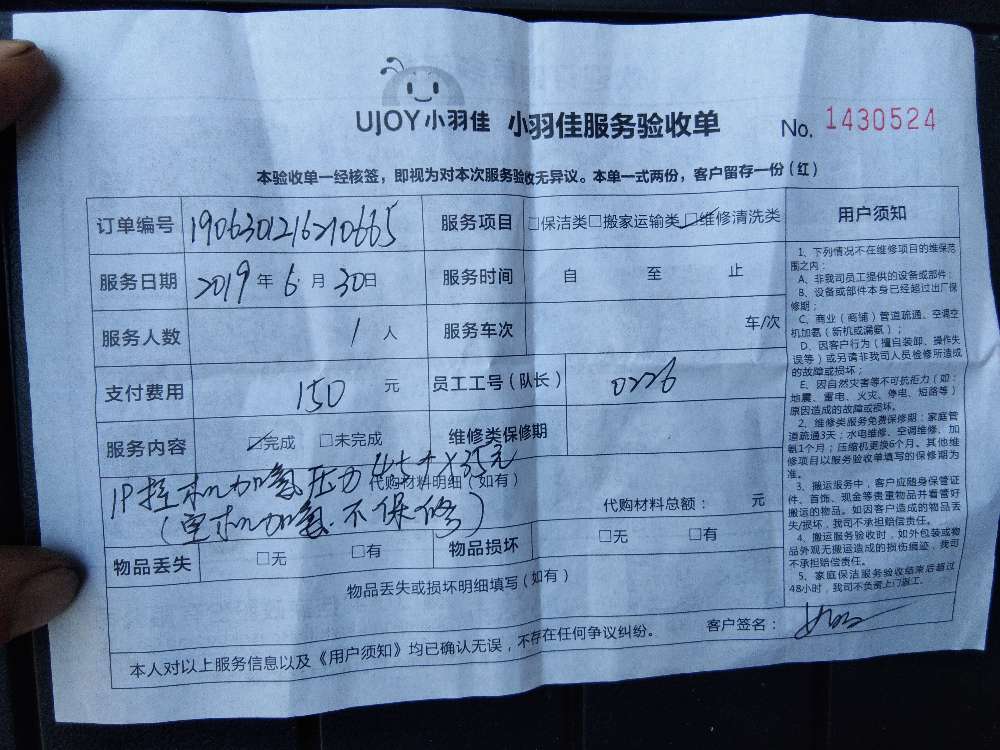 UJOY小羽佳 小羽佳服务验收单 No. 1430524
本验收单一经核签，即视为对本次服务验收无异议。本单一式两份，客户留存一份（红）
订单编号 190630121621066​5 服务项目 □保洁类□搬家运输类☑维修清洗类
服务日期 2019年6月30日 服务时间 自 至 止
服务人数 1人 服务车次 车/次
支付费用 150元 员工工号（队长） 0226
服务内容 ☑完成 □未完成 维修类保修期
代购材料明细（如有）
1P挂机加氨压力
(单机加氨.不保修)
代购材料总额： 元
物品丢失 □无 □有 物品损坏 □无 □有
物品丢失或损坏明细填写（如有）
客户签名：
本人对以上服务信息以及《用户须知》均已确认无误，不存在任何争议纠纷。
用户须知
1、下列情况不在维修项目的维保范
围之内：
A、非我司员工提供的设备或部件；
B、设备或部件本身已经超过出厂保
修期；
C、商业（商铺）管道疏通、空调空
机加氨（新机或漏氨）；
D、因客户行为（擅自装卸、操作失
误等）或另请非我司人员检修所造成
的故障或损坏；
E、因自然灾害等不可抗拒力（如：
地震、雷电、火灾、停电、短路等）
原因造成的故障或损坏。
2、维修类服务免费保修期：家庭管
道疏通3天；水电维修、空调维修、加
氨1个月；压缩机更换6个月。其他维
修项目以服务验收单填写的保修期为
准。
3、搬运服务中，客户应随身保管证
件、首饰、现金等贵重物品并看管好
搬运的物品。如因客户造成的物品丢
失/损坏，我司不承担赔偿责任。
4、搬运服务验收时，如外包装或物
品外观无搬运造成的损伤痕迹，我司
不承担赔偿责任。
5、家庭保洁服务验收结束后超过
48小时，我司不负责上门返工。